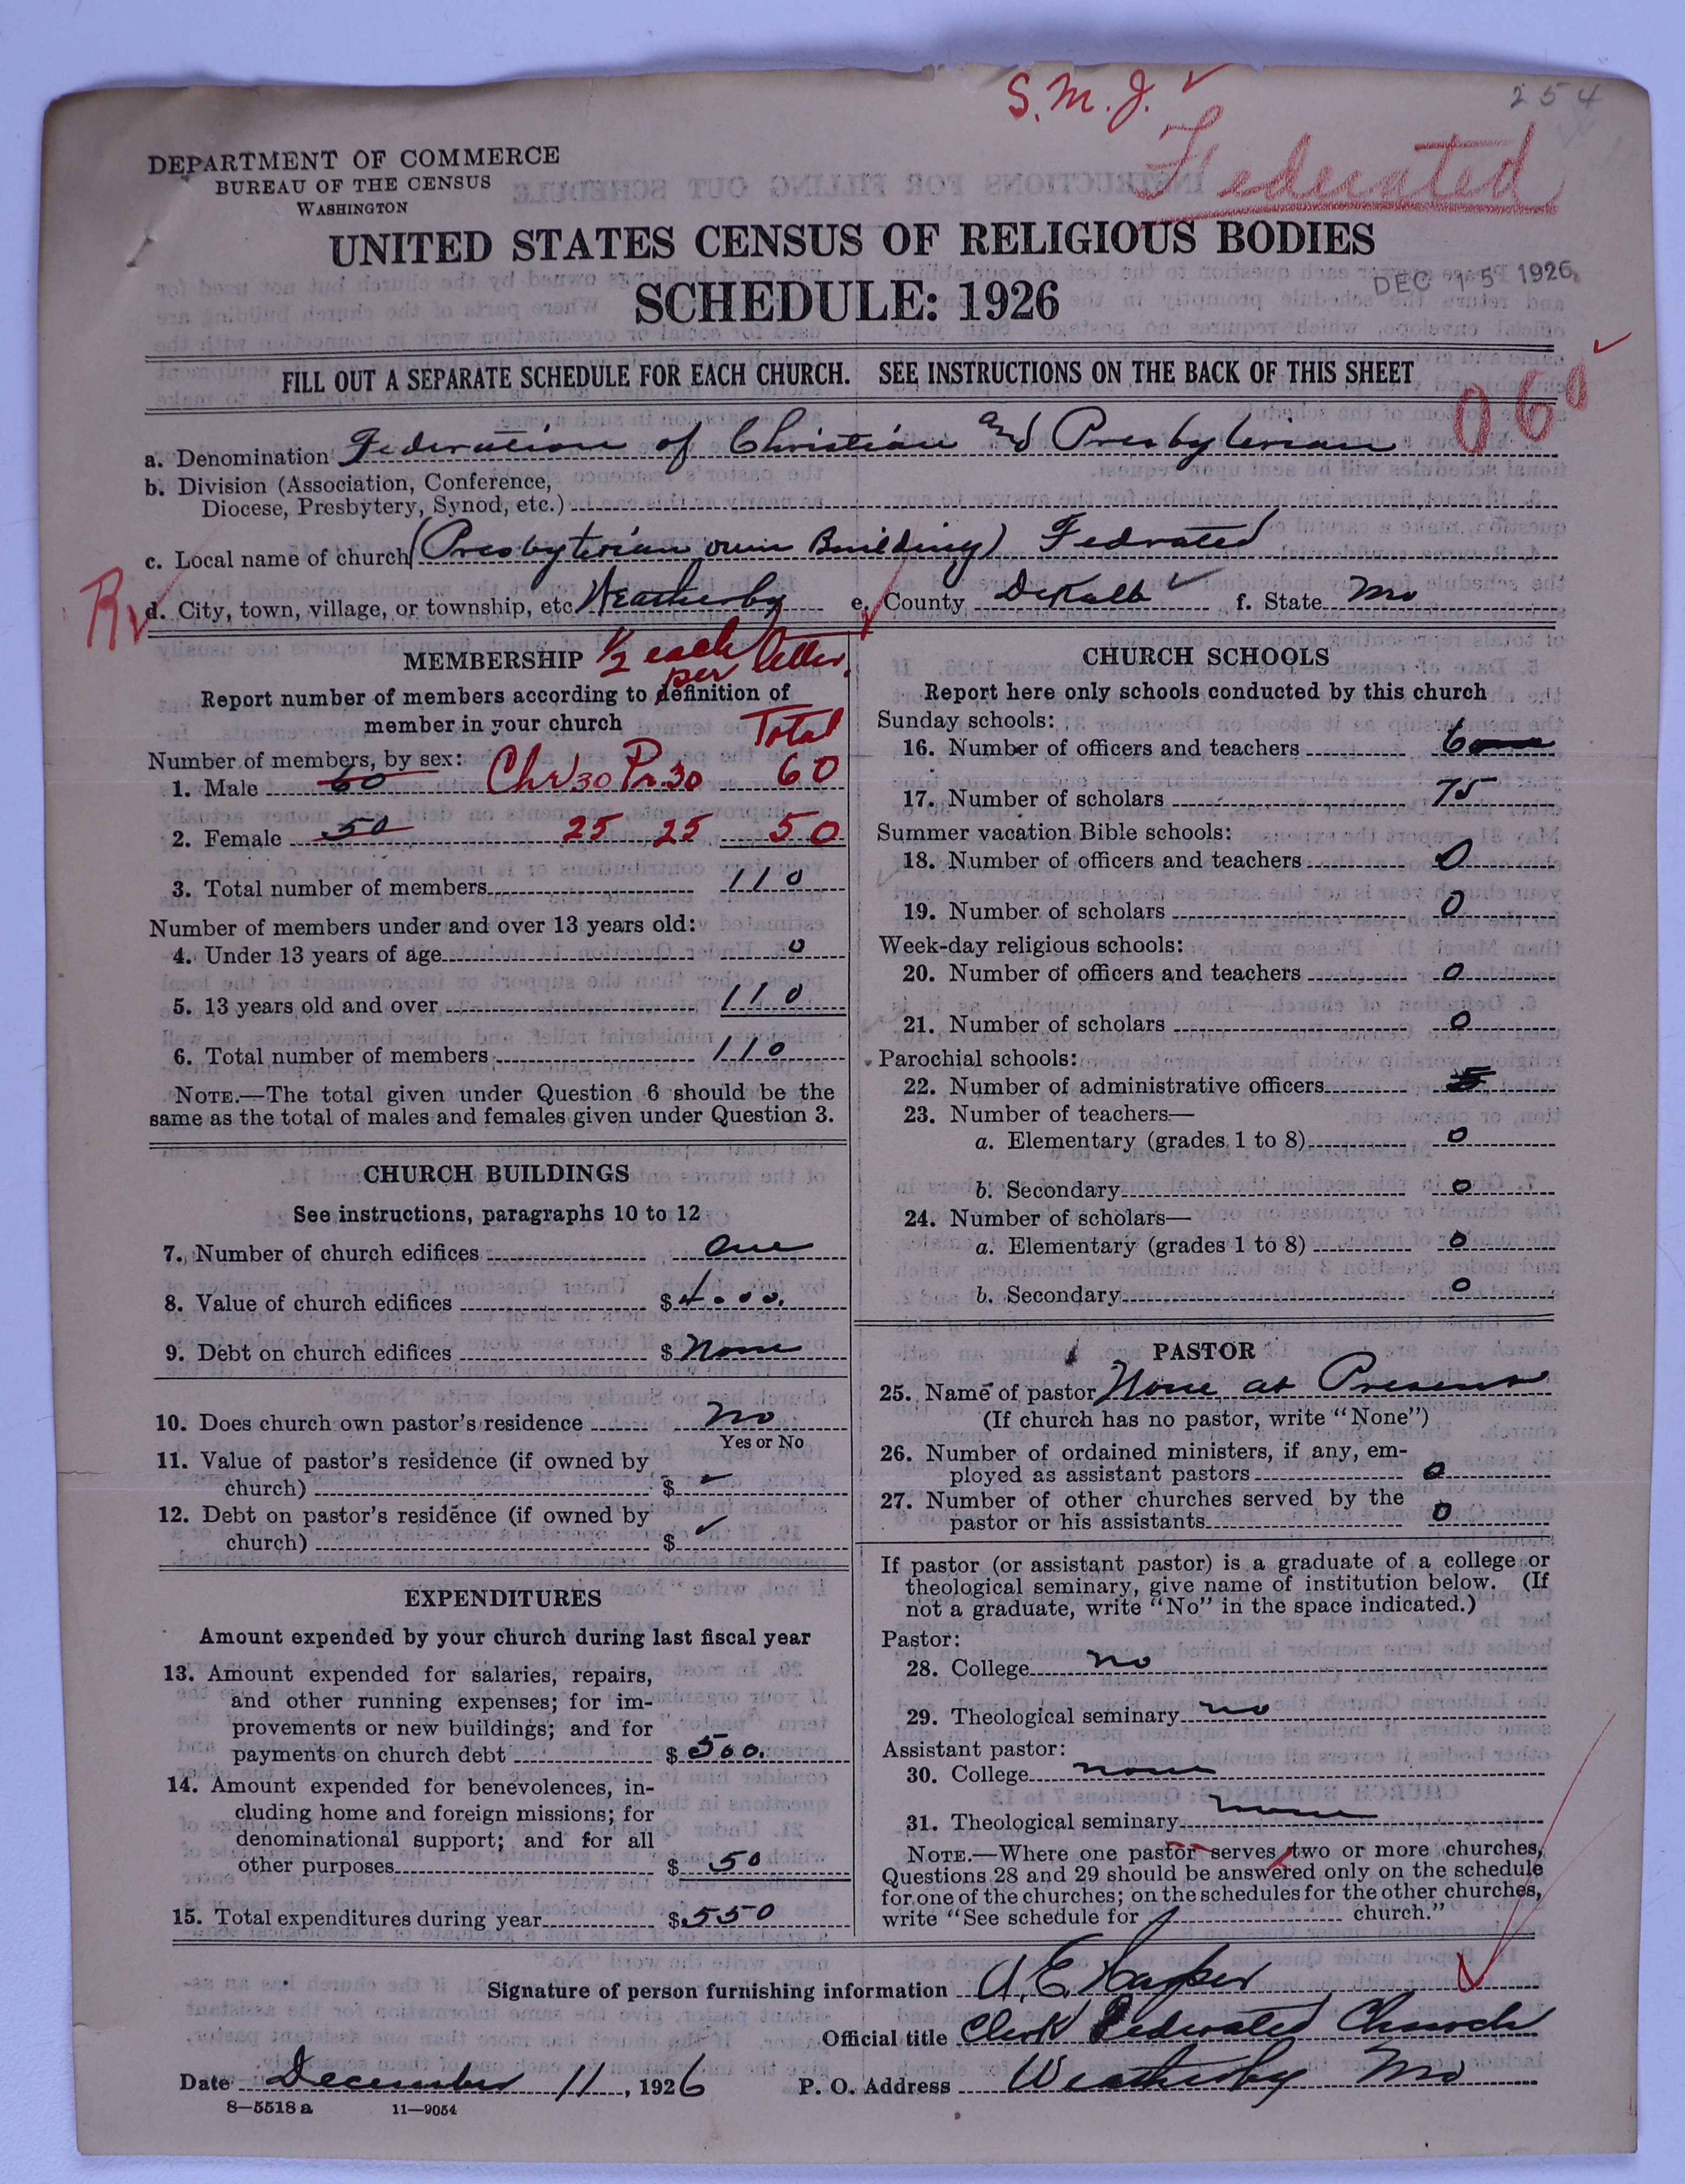 S. M. J. ✓
254
Federated
DEPARTMENT OF COMMERCE
BUREAU OF THE CENSUS
WASHINGTON
UNITED STATES CENSUS OF RELIGIOUS BODIES
SCHEDULE: 1926
DEC 15 1926
FILL OUT A SEPARATE SCHEDULE FOR EACH CHURCH. SEE INSTRUCTIONS ON THE BACK OF THIS SHEET
060 ✓
a. Denomination Federation of Christian and Presbyterian
b. Division (Association, Conference,
Diocese, Presbytery, Synod, etc.)
c. Local name of church (Presbyterian own Building) Fedrated
d. City, town, village, or township, etc. Weatherby e. County DeKalb ✓ f. State Mo
MEMBERSHIP 1/2 each per letter.
Report number of members according to definition of
member in your church
Total
Number of members, by sex:
1. Male 60 Chr 30 Pr. 30 60
2. Female 50 25 25 50
3. Total number of members 110
Number of members under and over 13 years old:
4. Under 13 years of age 0
5. 13 years old and over 110
6. Total number of members 110
NOTE.—The total given under Question 6 should be the
same as the total of males and females given under Question 3.
CHURCH BUILDINGS
See instructions, paragraphs 10 to 12
7. Number of church edifices One
8. Value of church edifices $4000.
9. Debt on church edifices $None
10. Does church own pastor's residence No
Yes or No
11. Value of pastor's residence (if owned by
church) $ ✓
12. Debt on pastor's residence (if owned by
church) $ ✓
EXPENDITURES
Amount expended by your church during last fiscal year
13. Amount expended for salaries, repairs,
and other running expenses; for im-
provements or new buildings; and for
payments on church debt $500.
14. Amount expended for benevolences, in-
cluding home and foreign missions; for
denominational support; and for all
other purposes $50
15. Total expenditures during year $550
CHURCH SCHOOLS
Report here only schools conducted by this church
Sunday schools:
16. Number of officers and teachers 6
17. Number of scholars 75
Summer vacation Bible schools:
18. Number of officers and teachers 0
19. Number of scholars 0
Week-day religious schools:
20. Number of officers and teachers 0
21. Number of scholars 0
Parochial schools:
22. Number of administrative officers
23. Number of teachers—
a. Elementary (grades 1 to 8) 0
b. Secondary 0
24. Number of scholars—
a. Elementary (grades 1 to 8) 0
b. Secondary 0
PASTOR
25. Name of pastor None at Present
(If church has no pastor, write "None")
26. Number of ordained ministers, if any, em-
ployed as assistant pastors 0
27. Number of other churches served by the
pastor or his assistants 0
If pastor (or assistant pastor) is a graduate of a college or
theological seminary, give name of institution below. (If
not a graduate, write "No" in the space indicated.)
Pastor:
28. College no
29. Theological seminary no
Assistant pastor:
30. College none
31. Theological seminary none
NOTE.—Where one pastor serves two or more churches,
Questions 28 and 29 should be answered only on the schedule
for one of the churches; on the schedules for the other churches,
write "See schedule for church."
Signature of person furnishing information A. E. Harper
Official title Clerk Federated Church
Date December 11, 1926 P. O. Address Weatherby Mo
8—5518 a 11—9054